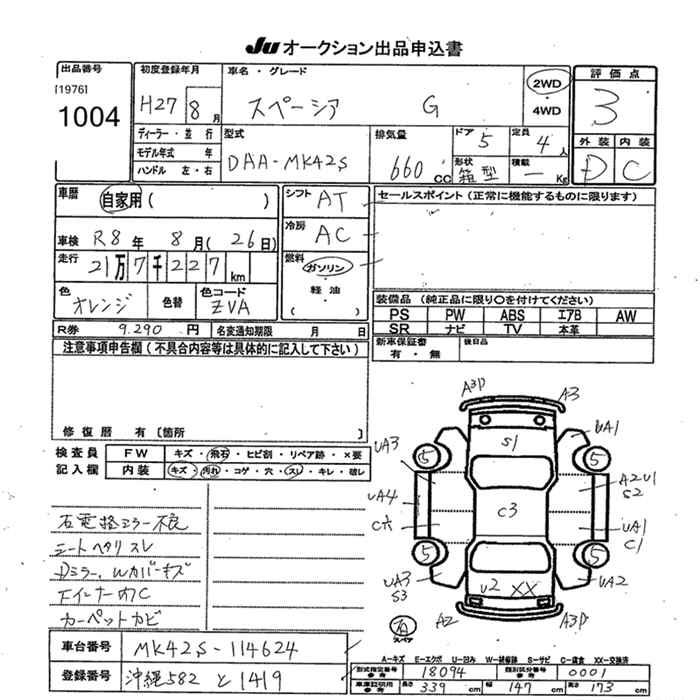 JU オークション出品申込書
出品番号
[1976]
1004
初度登録年月
H27 8 月
車名・グレード
スペーシア G
2WD
4WD
評価点
3
外装 内装
D C
ディーラー・並行
モデル年式 年
ハンドル 左・右
型式
DAA-MK42S
排気量
660 CC
ドア 5
定員 4 人
形状 箱型
積載 ー Kg
車歴 自家用( )
車検 R8 年 8 月( 26 日)
走行 21万7千227 km
色 オレンジ
色替
色コード ZVA
シフト AT
冷房 AC
燃料 ガソリン
・
軽油
( )
セールスポイント(正常に機能するものに限ります)
装備品(純正品に限り〇を付けてください)
PS PW ABS エアB AW
SR ナビ TV 本革
新車保証書 有・無
後日品
R券 9.290 円
名変通知期限 月 日
注意事項申告欄(不具合内容等は具体的に記入して下さい)
修復歴 有〔箇所 〕
検査員記入欄
FW キズ・飛石・ヒビ割・リペア跡・×要
内装 キズ・汚れ・コゲ・穴・スレ・キレ・破レ
右電格ミラー不良
シートヘタリスレ
Dミラー、Wカバーキズ
カーペットカビ
車台番号 MK42S-114624
登録番号 沖縄582 と 1419
A3P A3
S1 UA1
UA3 5 5
A2U1
S2
UA4
C穴 C3 UA1
C1
5 5
UA3
S3
UA2
U2 XX
A2 A3P
TA
スペア
A-キズ E-エクボ U-凹み W-補修跡 S-サビ C-腐食 XX-交換済
型式指定番号 参考 18094
類別区分番号 参考 0001
車庫証明用 参考 長さ 339 cm 幅 147 cm 高さ 173 cm